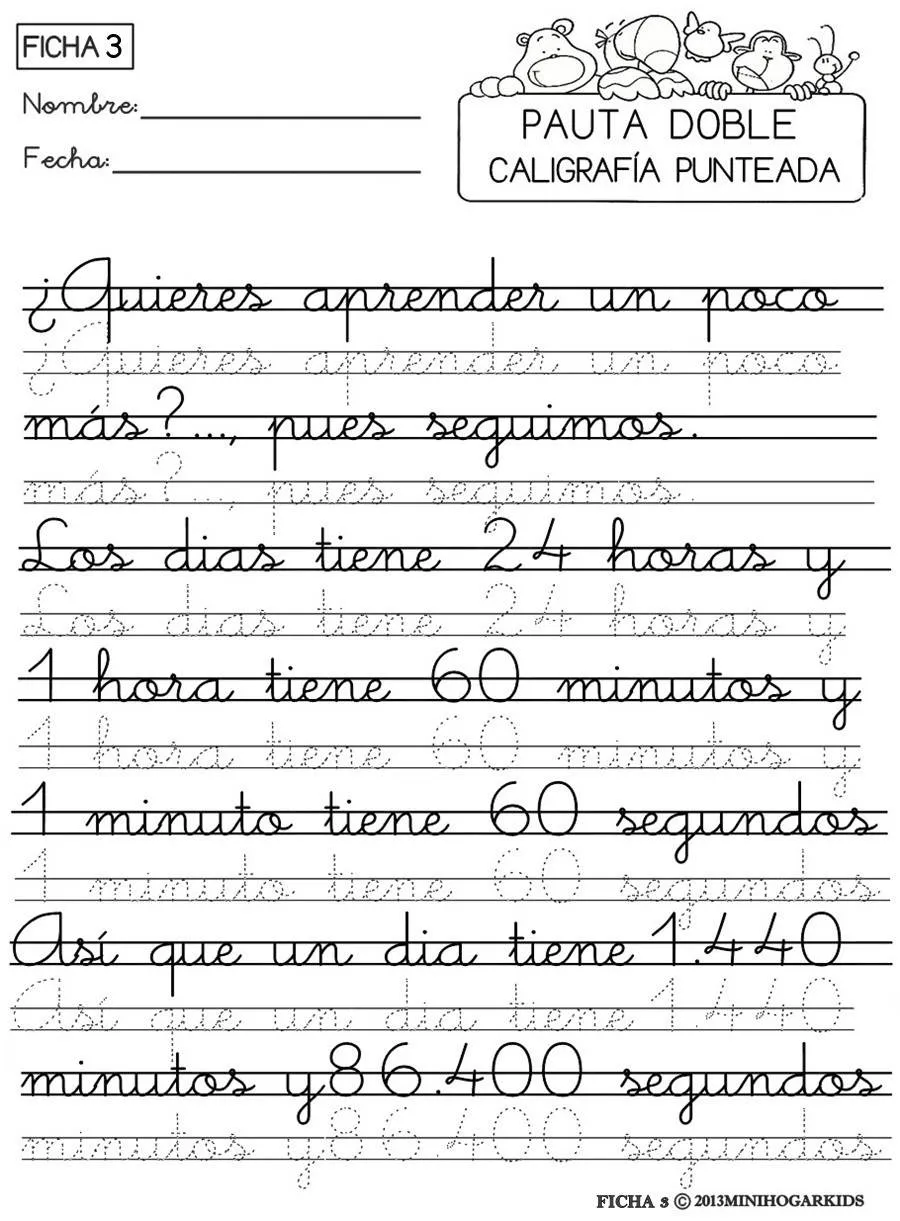 FICHA 3
Nombre:
Fecha:
PAUTA DOBLE
CALIGRAFÍA PUNTEADA
¿Quieres aprender un poco
¿Quieres aprender un poco
más?..., pues seguimos.
más?..., pues seguimos.
Los dias tiene 24 horas y
Los dias tiene 24 horas y
1 hora tiene 60 minutos y
1 hora tiene 60 minutos y
1 minuto tiene 60 segundos
1 minuto tiene 60 segundos
Así que un dia tiene 1.440
Así que un dia tiene 1.440
minutos y 86.400 segundos
minutos y 86.400 segundos
FICHA 3 © 2013MINIHOGARKIDS